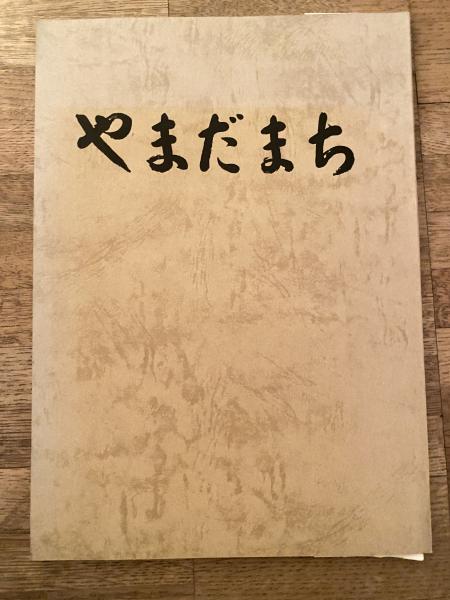 やまだまち